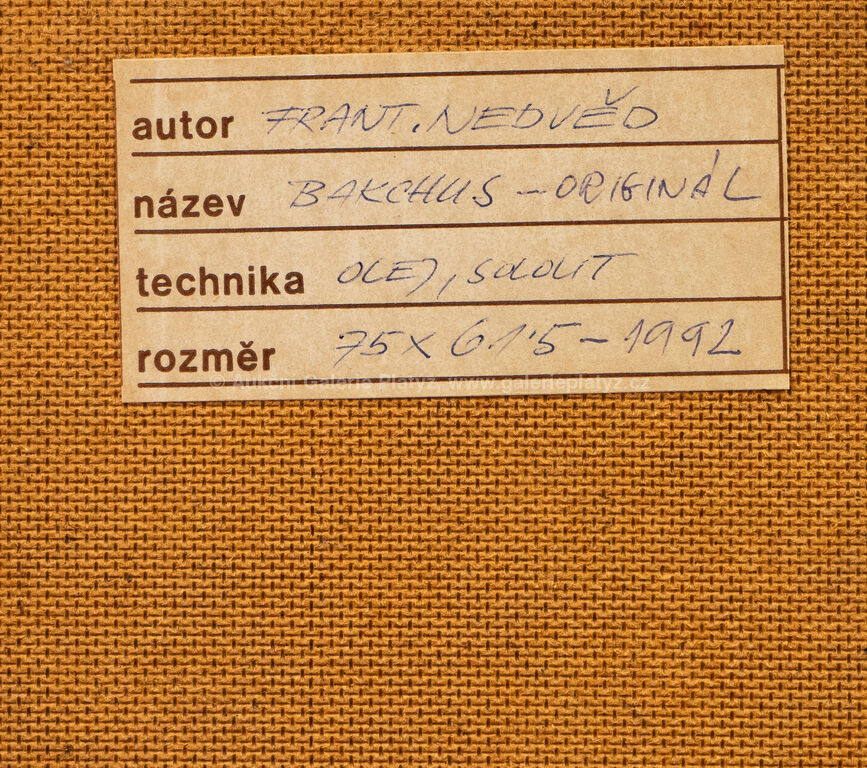 autor FRANT. NEDVĚD
název BAKCHUS – ORIGINÁL
technika OLEJ, SOLOLIT
rozměr 75 x 61'5 – 1992
© Aukční Galerie Platýz, www.galerieplatyz.cz